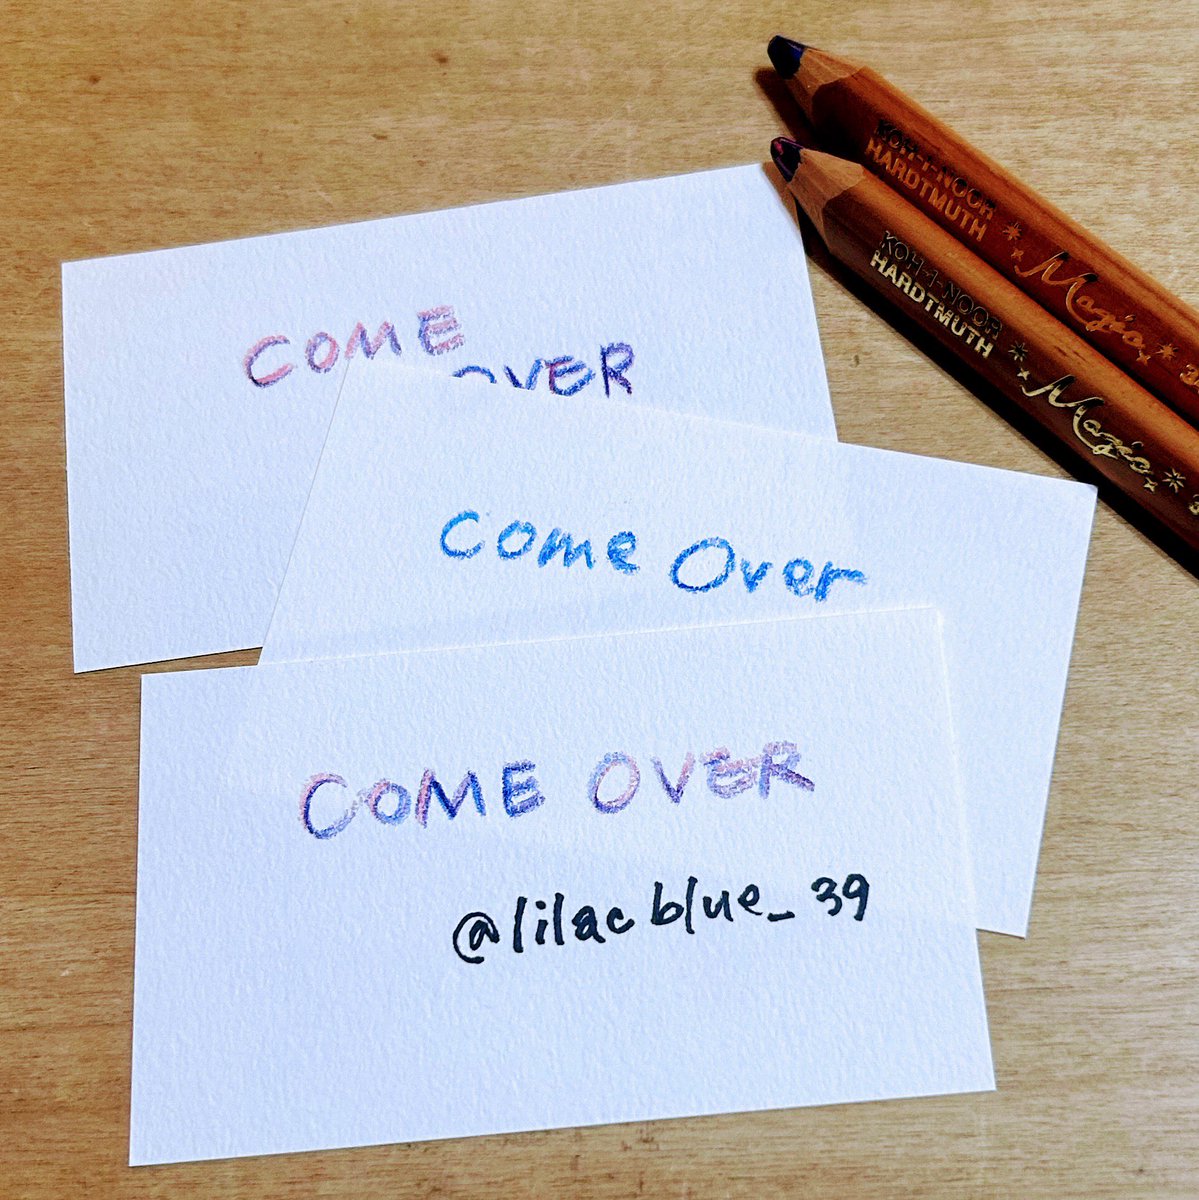 KOH-I-NOOR
HARDTMUTH
Magic
KOH-I-NOOR
HARDTMUTH
Magic
COME
OVER
Come Over
COME OVER
@lilacblue_39